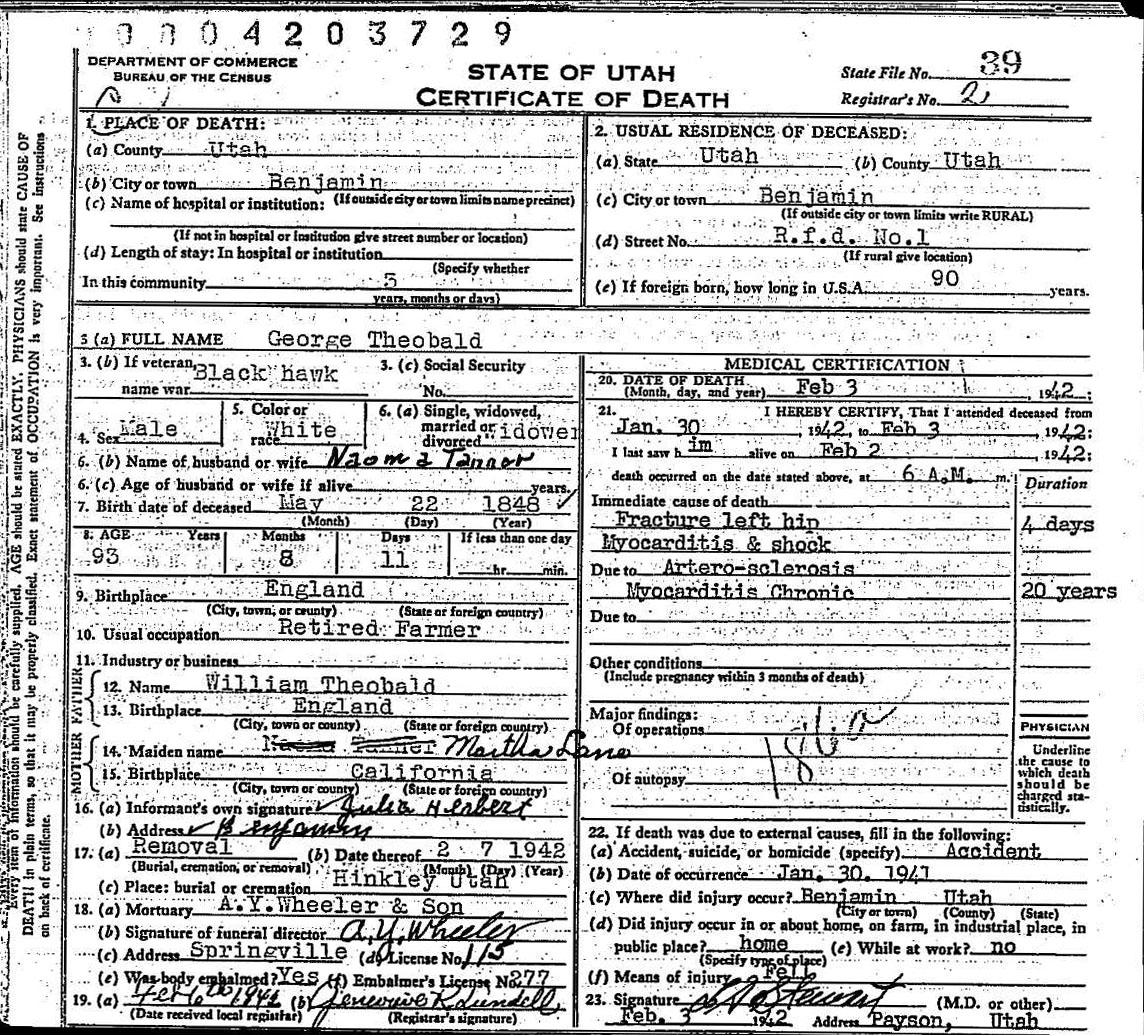 0004203729
DEPARTMENT OF COMMERCE
BUREAU OF THE CENSUS
STATE OF UTAH
CERTIFICATE OF DEATH
State File No. 39
Registrar's No. 2
1. PLACE OF DEATH:
(a) County Utah
(b) City or town Benjamin
(If outside city or town limits name precinct)
(c) Name of hospital or institution:
(If not in hospital or institution give street number or location)
(d) Length of stay: In hospital or institution
(Specify whether
In this community
years, months or days)
2. USUAL RESIDENCE OF DECEASED:
(a) State Utah (b) County Utah
(c) City or town Benjamin
(If outside city or town limits write RURAL)
(d) Street No. R.f.d. No.1
(If rural give location)
(e) If foreign born, how long in U.S.A. 90 years.
3 (a) FULL NAME George Theobald
3. (b) If veteran, name war Black hawk
3. (c) Social Security No.
4. Sex Male
5. Color or race White
6. (a) Single, widowed, married or divorced Widower
6. (b) Name of husband or wife Naoma Tanner
6. (c) Age of husband or wife if alive years.
7. Birth date of deceased May 22 1848
(Month) (Day) (Year)
8. AGE Years Months Days If less than one day
93 8 11 hr. min.
9. Birthplace England
(City, town, or county) (State or foreign country)
10. Usual occupation Retired Farmer
11. Industry or business
FATHER
12. Name William Theobald
13. Birthplace England
(City, town or county) (State or foreign country)
MOTHER
14. Maiden name Martha Lane
15. Birthplace California
(City, town or county) (State or foreign country)
16. (a) Informant's own signature Julia Herbert
(b) Address Benjamin
17. (a) Removal (b) Date thereof 2 7 1942
(Burial, cremation, or removal) (Month) (Day) (Year)
(c) Place: burial or cremation Hinkley Utah
18. (a) Mortuary A.Y.Wheeler & Son
(b) Signature of funeral director A.Y. Wheeler
(c) Address Springville (d) License No. 115
(e) Was body embalmed? Yes (f) Embalmer's License No. 277
19. (a) Feb 6 1942 (b) Genevieve R Lundell
(Date received local registrar) (Registrar's signature)
MEDICAL CERTIFICATION
20. DATE OF DEATH
(Month, day, and year) Feb 3 1942:
21. I HEREBY CERTIFY, That I attended deceased from
Jan. 30 1942, to Feb 3 1942:
I last saw him alive on Feb 2, 1942:
death occurred on the date stated above, at 6 A.M. m.
Duration
Immediate cause of death
Fracture left hip 4 days
Myocarditis & shock
Due to Artero-sclerosis
Myocarditis Chronic 20 years
Due to
Other conditions
(Include pregnancy within 3 months of death)
Major findings:
Of operations
186a
Of autopsy
PHYSICIAN
Underline
the cause to
which death
should be
charged sta-
tistically.
22. If death was due to external causes, fill in the following:
(a) Accident, suicide, or homicide (specify) Accident
(b) Date of occurrence Jan. 30. 1941
(c) Where did injury occur? Benjamin Utah
(City or town) (County) (State)
(d) Did injury occur in or about home, on farm, in industrial place, in
public place? home (e) While at work? no
(Specify type of place)
(f) Means of injury Fell
23. Signature Stewart (M.D. or other)
Feb. 3 1942 Address Payson, Utah
Every item of information should be carefully supplied. AGE should be stated EXACTLY. PHYSICIANS should state CAUSE OF
DEATH in plain terms, so that it may be properly classified. Exact statement of OCCUPATION is very important. See instructions
on back of certificate.